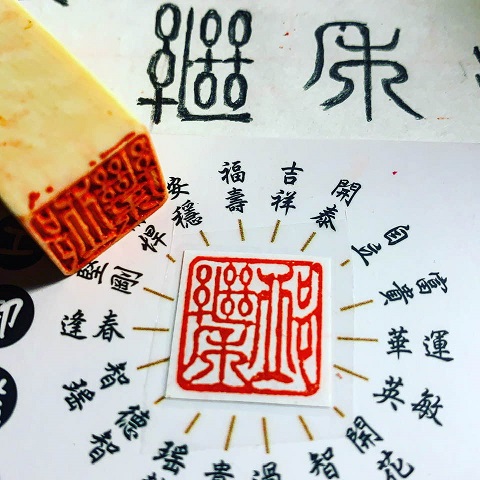 繼承
安穩
福壽
吉祥
開泰
自立
富貴
華運
英敏
開花
智
過
貴
瑤
智德
瑤智
逢春
堅剛
悍
祁
繼承